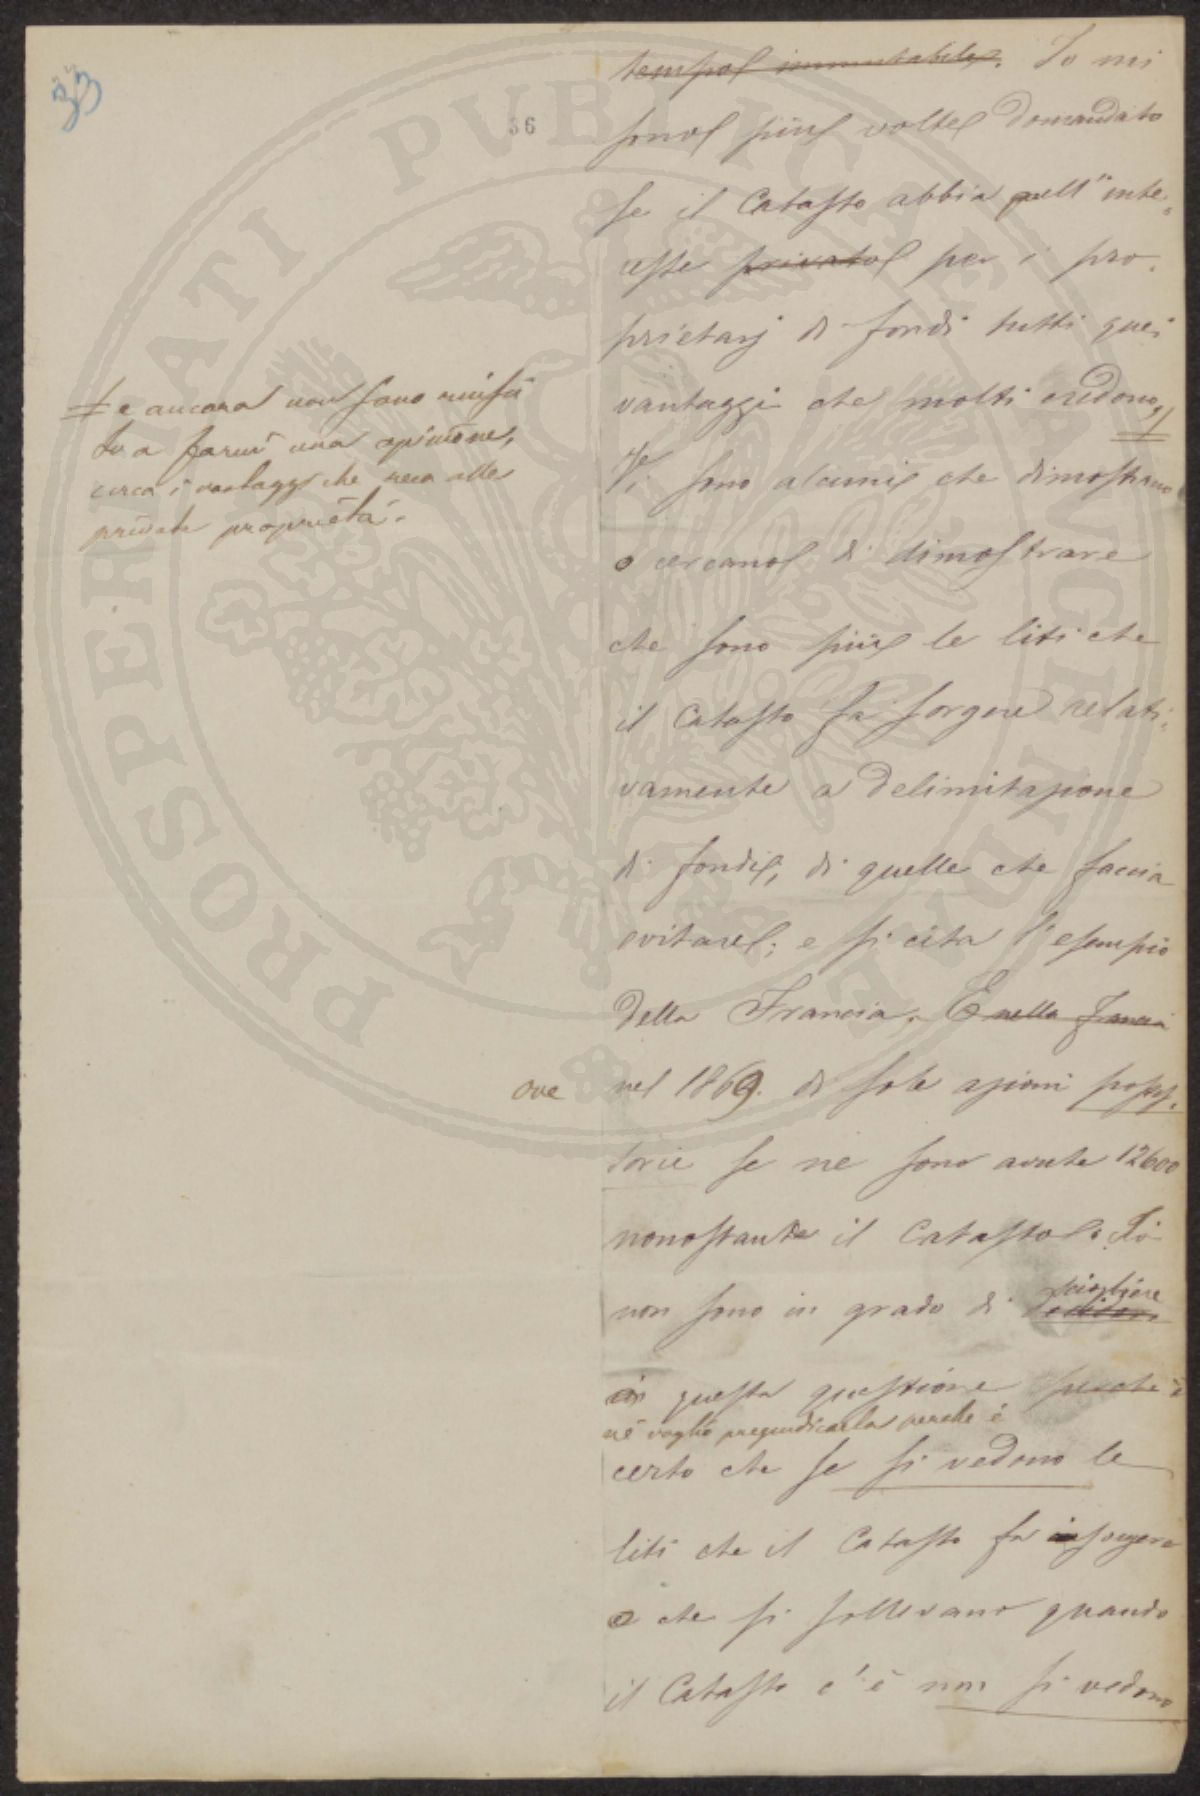 33
36
tempo immutabile. Io mi
sono più volte domandato
se il Catasto abbia quell'inte-
resse privato per i pro-
prietarj di fondi tutti quei
vantaggi che molti credono,
= e ancora non sono riusci
to a farmi una opinione,
circa i vantaggi che reca alle
private proprietà.
Vi sono alcuni che dimostrano
o cercano di dimostrare
che sono più le liti che
il Catasto fa sorgere relati-
vamente a delimitazione
di fondi, di quelle che faccia
evitare; e si cita l'esempio
della Francia. E nella Francia
ove nel 1869. di sole azioni posses-
sorie se ne sono avute 12600
nonostante il Catasto. Io
non sono in grado di decidere
sciogliere
questa questione perché è
nè voglio pregiudicarla perché è
certo che se si vedono le
liti che il Catasto fa sorgere
o che si sollevano quando
il Catasto c'è non si vedono
PROSPERNATI PVBLICAE